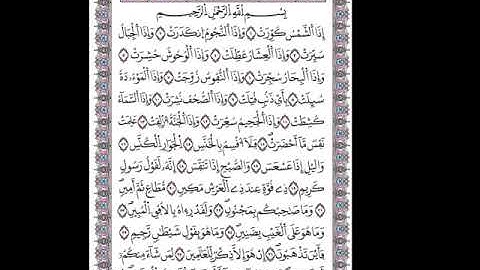 بِسْمِ اللَّهِ الرَّحْمَٰنِ الرَّحِيمِ
إِذَا الشَّمْسُ كُوِّرَتْ ۝ وَإِذَا النُّجُومُ انكَدَرَتْ ۝ وَإِذَا الْجِبَالُ
سُيِّرَتْ ۝ وَإِذَا الْعِشَارُ عُطِّلَتْ ۝ وَإِذَا الْوُحُوشُ حُشِرَتْ ۝
وَإِذَا الْبِحَارُ سُجِّرَتْ ۝ وَإِذَا النُّفُوسُ زُوِّجَتْ ۝ وَإِذَا الْمَوْءُۥدَةُ
سُئِلَتْ ۝ بِأَيِّ ذَنۢبٍ قُتِلَتْ ۝ وَإِذَا الصُّحُفُ نُشِرَتْ ۝ وَإِذَا السَّمَآءُ
كُشِطَتْ ۝ وَإِذَا الْجَحِيمُ سُعِّرَتْ ۝ وَإِذَا الْجَنَّةُ أُزْلِفَتْ ۝ عَلِمَتْ
نَفْسٌ مَّآ أَحْضَرَتْ ۝ فَلَآ أُقْسِمُ بِالْخُنَّسِ ۝ الْجَوَارِ الْكُنَّسِ ۝
وَالَّيْلِ إِذَا عَسْعَسَ ۝ وَالصُّبْحِ إِذَا تَنَفَّسَ ۝ إِنَّهُۥ لَقَوْلُ رَسُولٍ
كَرِيمٍ ۝ ذِي قُوَّةٍ عِندَ ذِي الْعَرْشِ مَكِينٍ ۝ مُّطَاعٍ ثَمَّ أَمِينٍ
۝ وَمَا صَاحِبُكُم بِمَجْنُونٍ ۝ وَلَقَدْ رَءَاهُ بِالْأُفُقِ الْمُبِينِ ۝
وَمَا هُوَ عَلَى الْغَيْبِ بِضَنِينٍ ۝ وَمَا هُوَ بِقَوْلِ شَيْطَٰنٍ رَّجِيمٍ ۝
فَأَيْنَ تَذْهَبُونَ ۝ إِنْ هُوَ إِلَّا ذِكْرٌ لِّلْعَٰلَمِينَ ۝ لِمَن شَآءَ مِنكُمُۥٓ